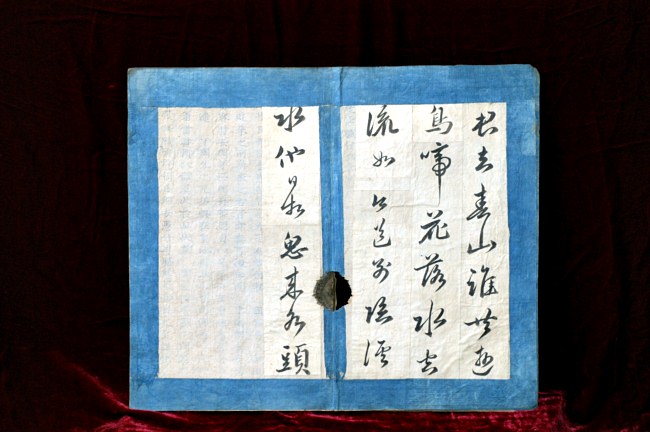 君去春山誰共遊
鳥啼花落水空
流如今送別臨溪
水他日相思來水頭